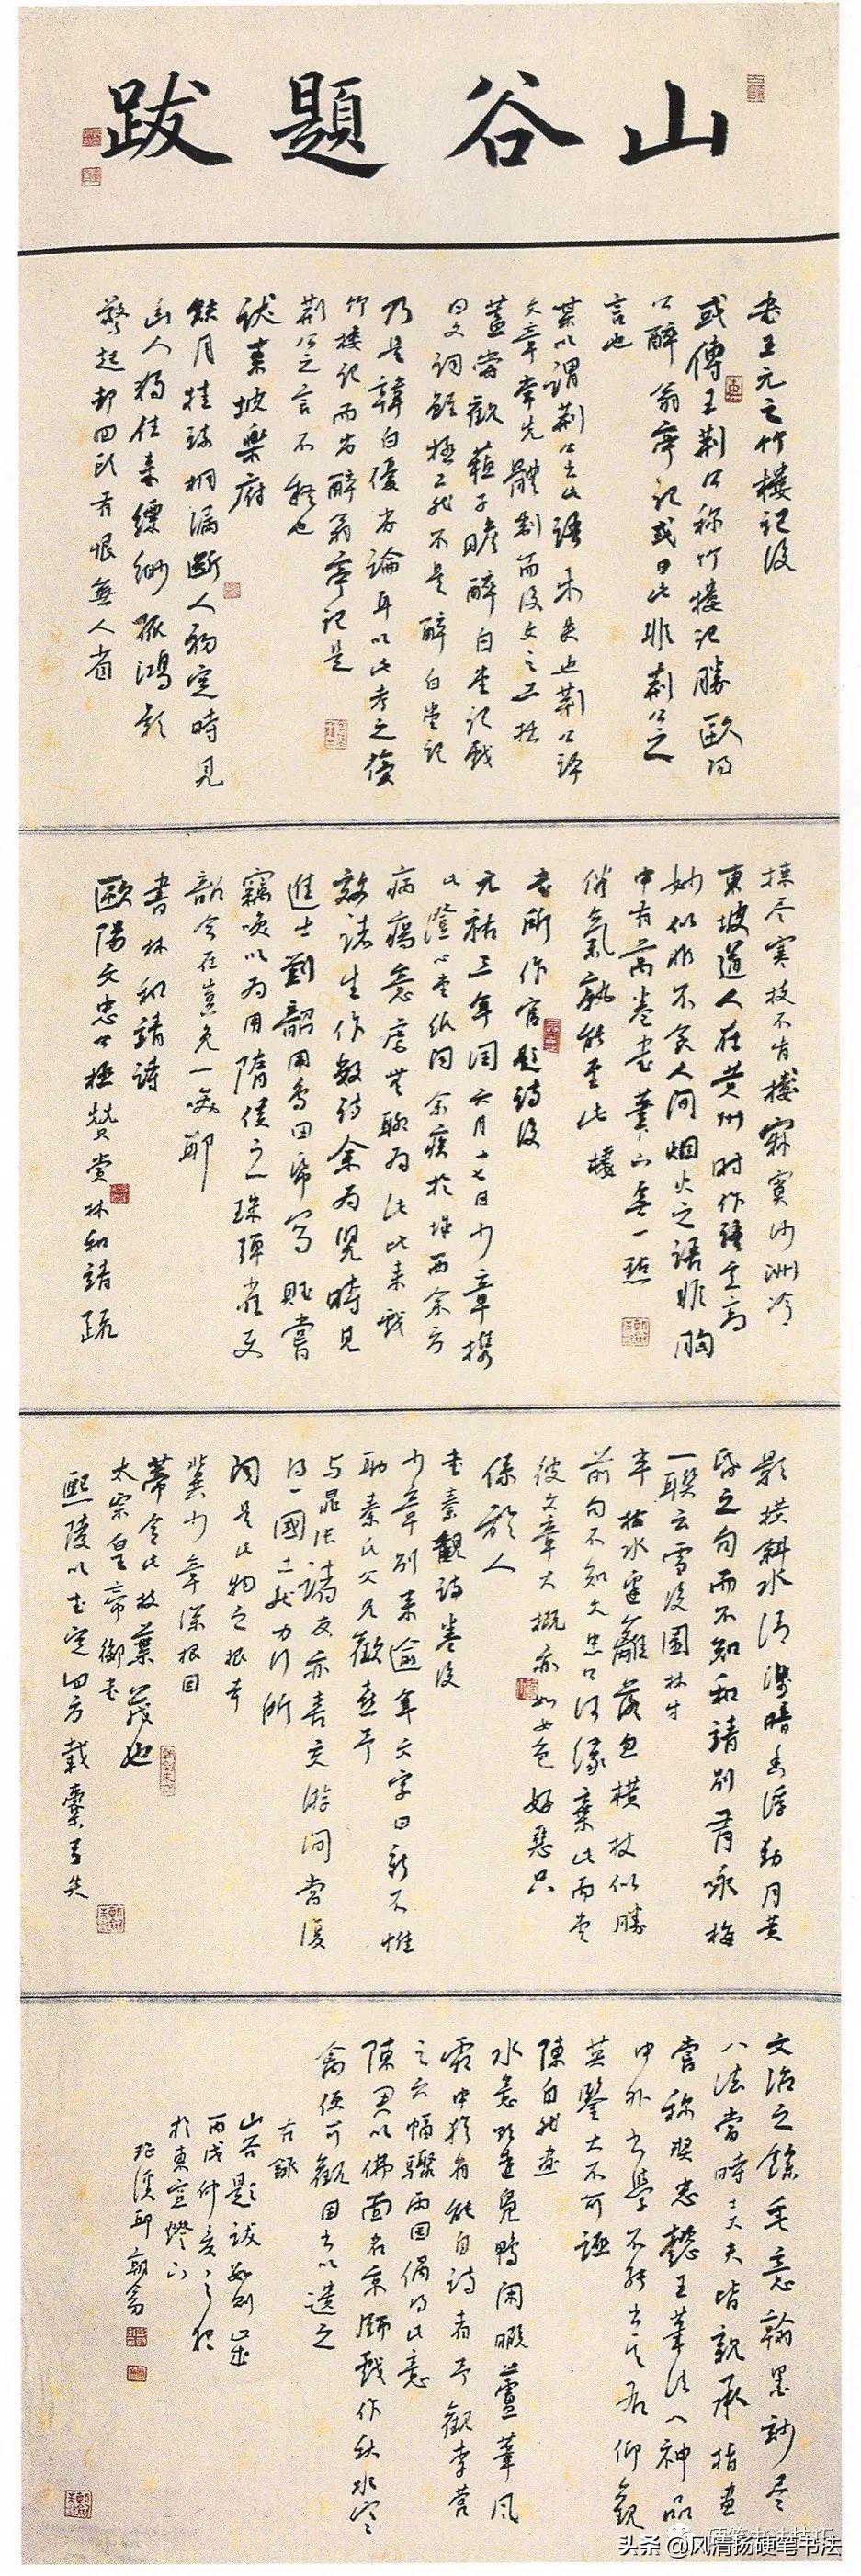 山谷題跋
書王元之竹樓記後
或傳王荆公稱竹樓記勝歐陽
公醉翁亭記或曰此非荆公之
言也
某以謂荆公出此語未失也荆公評
文章常先體制而後文之工拙
蓋嘗觀蘇子瞻醉白堂記戲
曰文詞雖極工然不是醉白堂記
乃是韓白優劣論耳以此考之優
竹樓記而劣醉翁亭記是
荆公之言不疑也
跋東坡樂府
缺月挂疏桐漏斷人初定時見
幽人獨往來縹緲孤鴻影
驚起却回頭有恨無人省
揀尽寒枝不肯棲寂寞沙洲冷
東坡道人在黄州时作語意高
妙似非不食人间烟火之語非胸
中有萬卷書筆下無一點
俗氣孰能至此
書所作官題詩後
元祐三年闰六月十七日少章携
此澄心堂纸问余疾於城西余方
病瘍意虑無聊为
效诸生作數詩余为兒時見
進士劉韶用烏田帋寫賦嘗
竊嘆以为用隋侯之珠彈雀更
韶今在豈免一笑耶
書林和靖詩
歐陽文忠公極赞赏林和靖疏
影横斜水清淺暗香浮動月黄
昏之句而不知和靖别有咏梅
一联云雪後園林才
半樹水邊籬落忽横枝似勝
前句不知文忠公何缘棄此而赏
彼文章大概亦如女色好惡只
係於人
書秦觀詩卷後
少章别来逾年文字日新不惟
助秦氏父兄歡喜予
与晁張諸友亦喜交游间當復
得一國士然力行所
闻是此物之根本
冀少章深根固
蒂令此枝葉茂也
太宗皇帝御書
熙陵以武定四方載橐弓矢
文治之餘垂意翰墨妙尽
八法當時士大夫皆親承指畫
嘗称奖忠懿王筆法入神品
中外書學不能出其右仰觀
英鑒大不可誣
陳自然畫
水意欲遠鳧鴨闲暇蘆葦风
霜中猶有能自持者予觀李营
之六幅驟雨图偶得此意
陳君以佛画名京師戲作秋水寒
禽便可觀因書以遗之
右錄
山谷題跋數則
丙戌仲夏之夜
於東窗燈下

头条 @风清扬硬笔书法